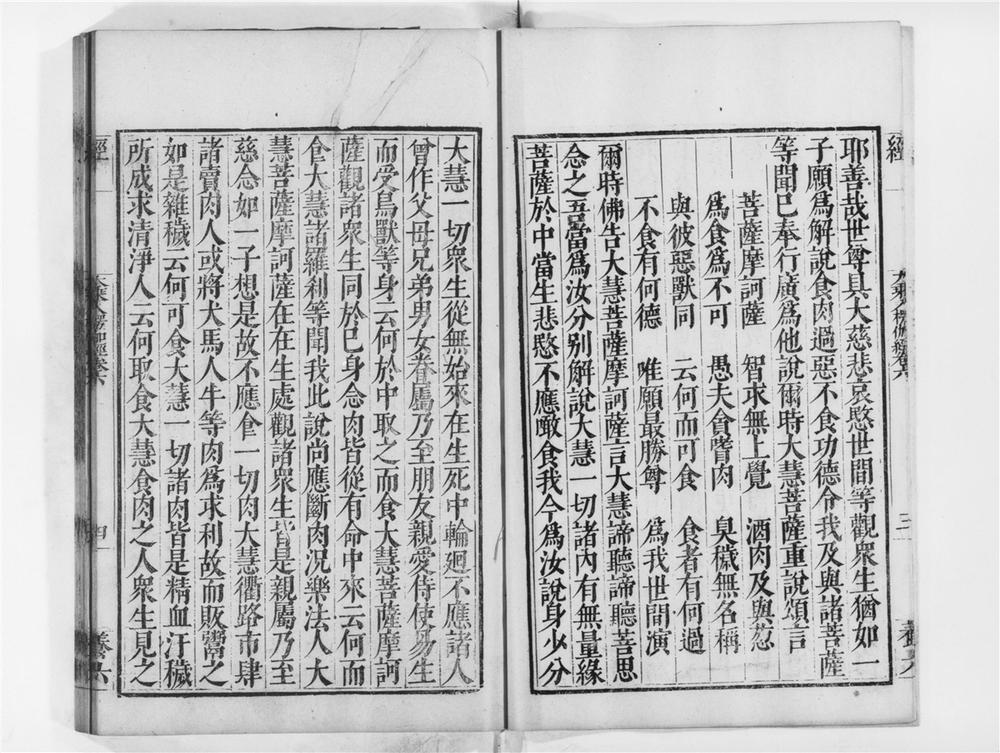 耶善哉世尊具大慈悲哀愍世間等觀眾生猶如一
子願為解說食肉過惡不食功德令我及與諸菩薩
等聞已奉行廣為他說爾時大慧菩薩重說頌言
菩薩摩訶薩　智求無上覺　酒肉及與葱
為食為不可　愚夫貪嗜肉　臭穢無名稱
與彼惡獸同　云何而可食　食者有何過
不食有何德　唯願最勝尊　為我世間演
爾時佛告大慧菩薩摩訶薩言大慧諦聽諦聽善思
念之吾當為汝分別解說大慧一切諸肉有無量緣
菩薩於中當生悲愍不應噉食我今為汝說身少分
大慧一切眾生從無始來在生死中輪迴不應諸人
曾作父母兄弟男女眷屬乃至朋友親愛侍使易生
而受鳥獸等身云何於中取之而食大慧菩薩摩訶
薩觀諸眾生同於己身念肉皆從有命中來云何而
食大慧諸羅剎等聞我此說尚應斷肉況樂法人大
慧菩薩摩訶薩在在生處觀諸眾生皆是親屬乃至
慈念如一子想是故不應食一切肉大慧衢路市肆
諸賣肉人或將犬馬人牛等肉為求利故而販鬻之
如是雜穢云何可食大慧一切諸肉皆是精血汙穢
所成求清淨人云何取食大慧食肉之人眾生見之